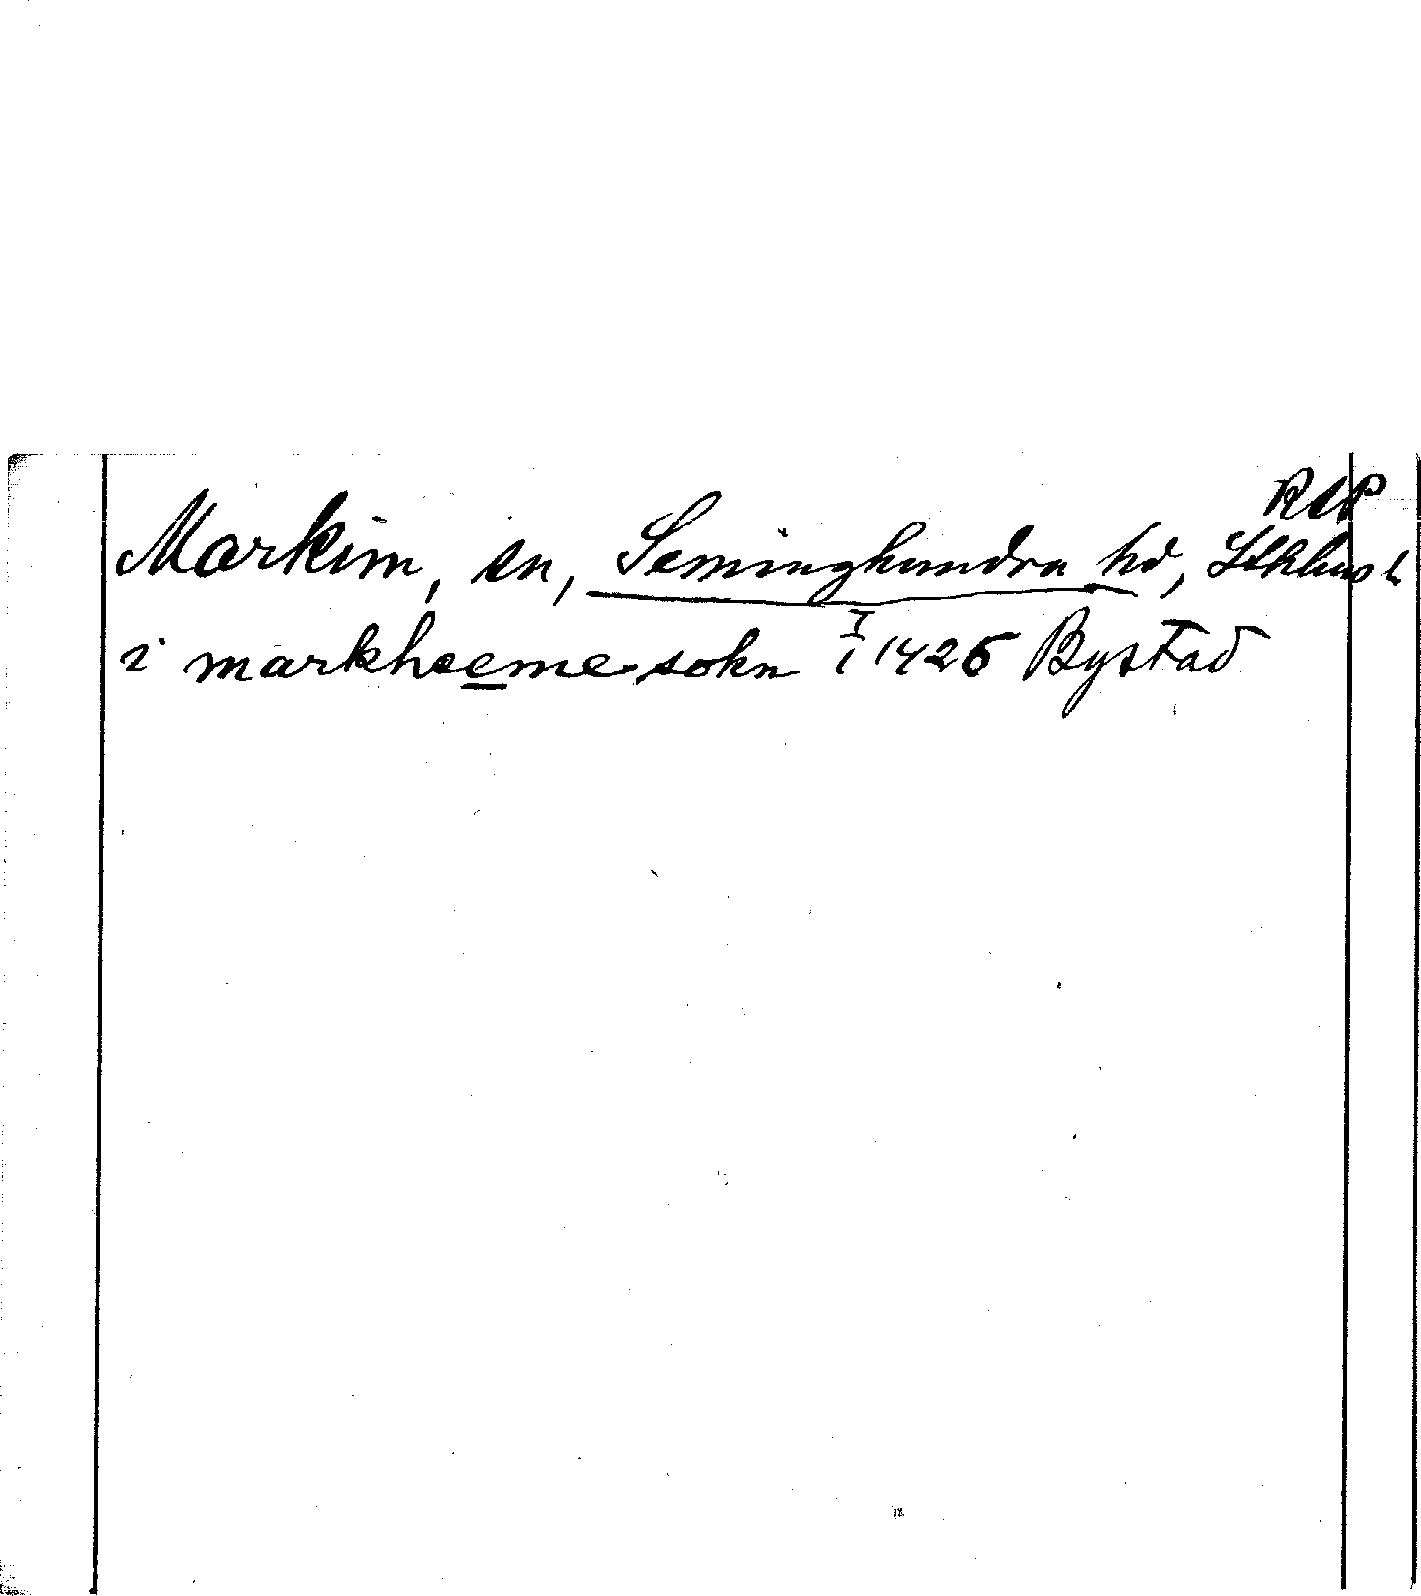 RAP
Markim, sn, Seminghundra hd, Sthlms l.
i markheeme sokn 1/1 1426 Bystad